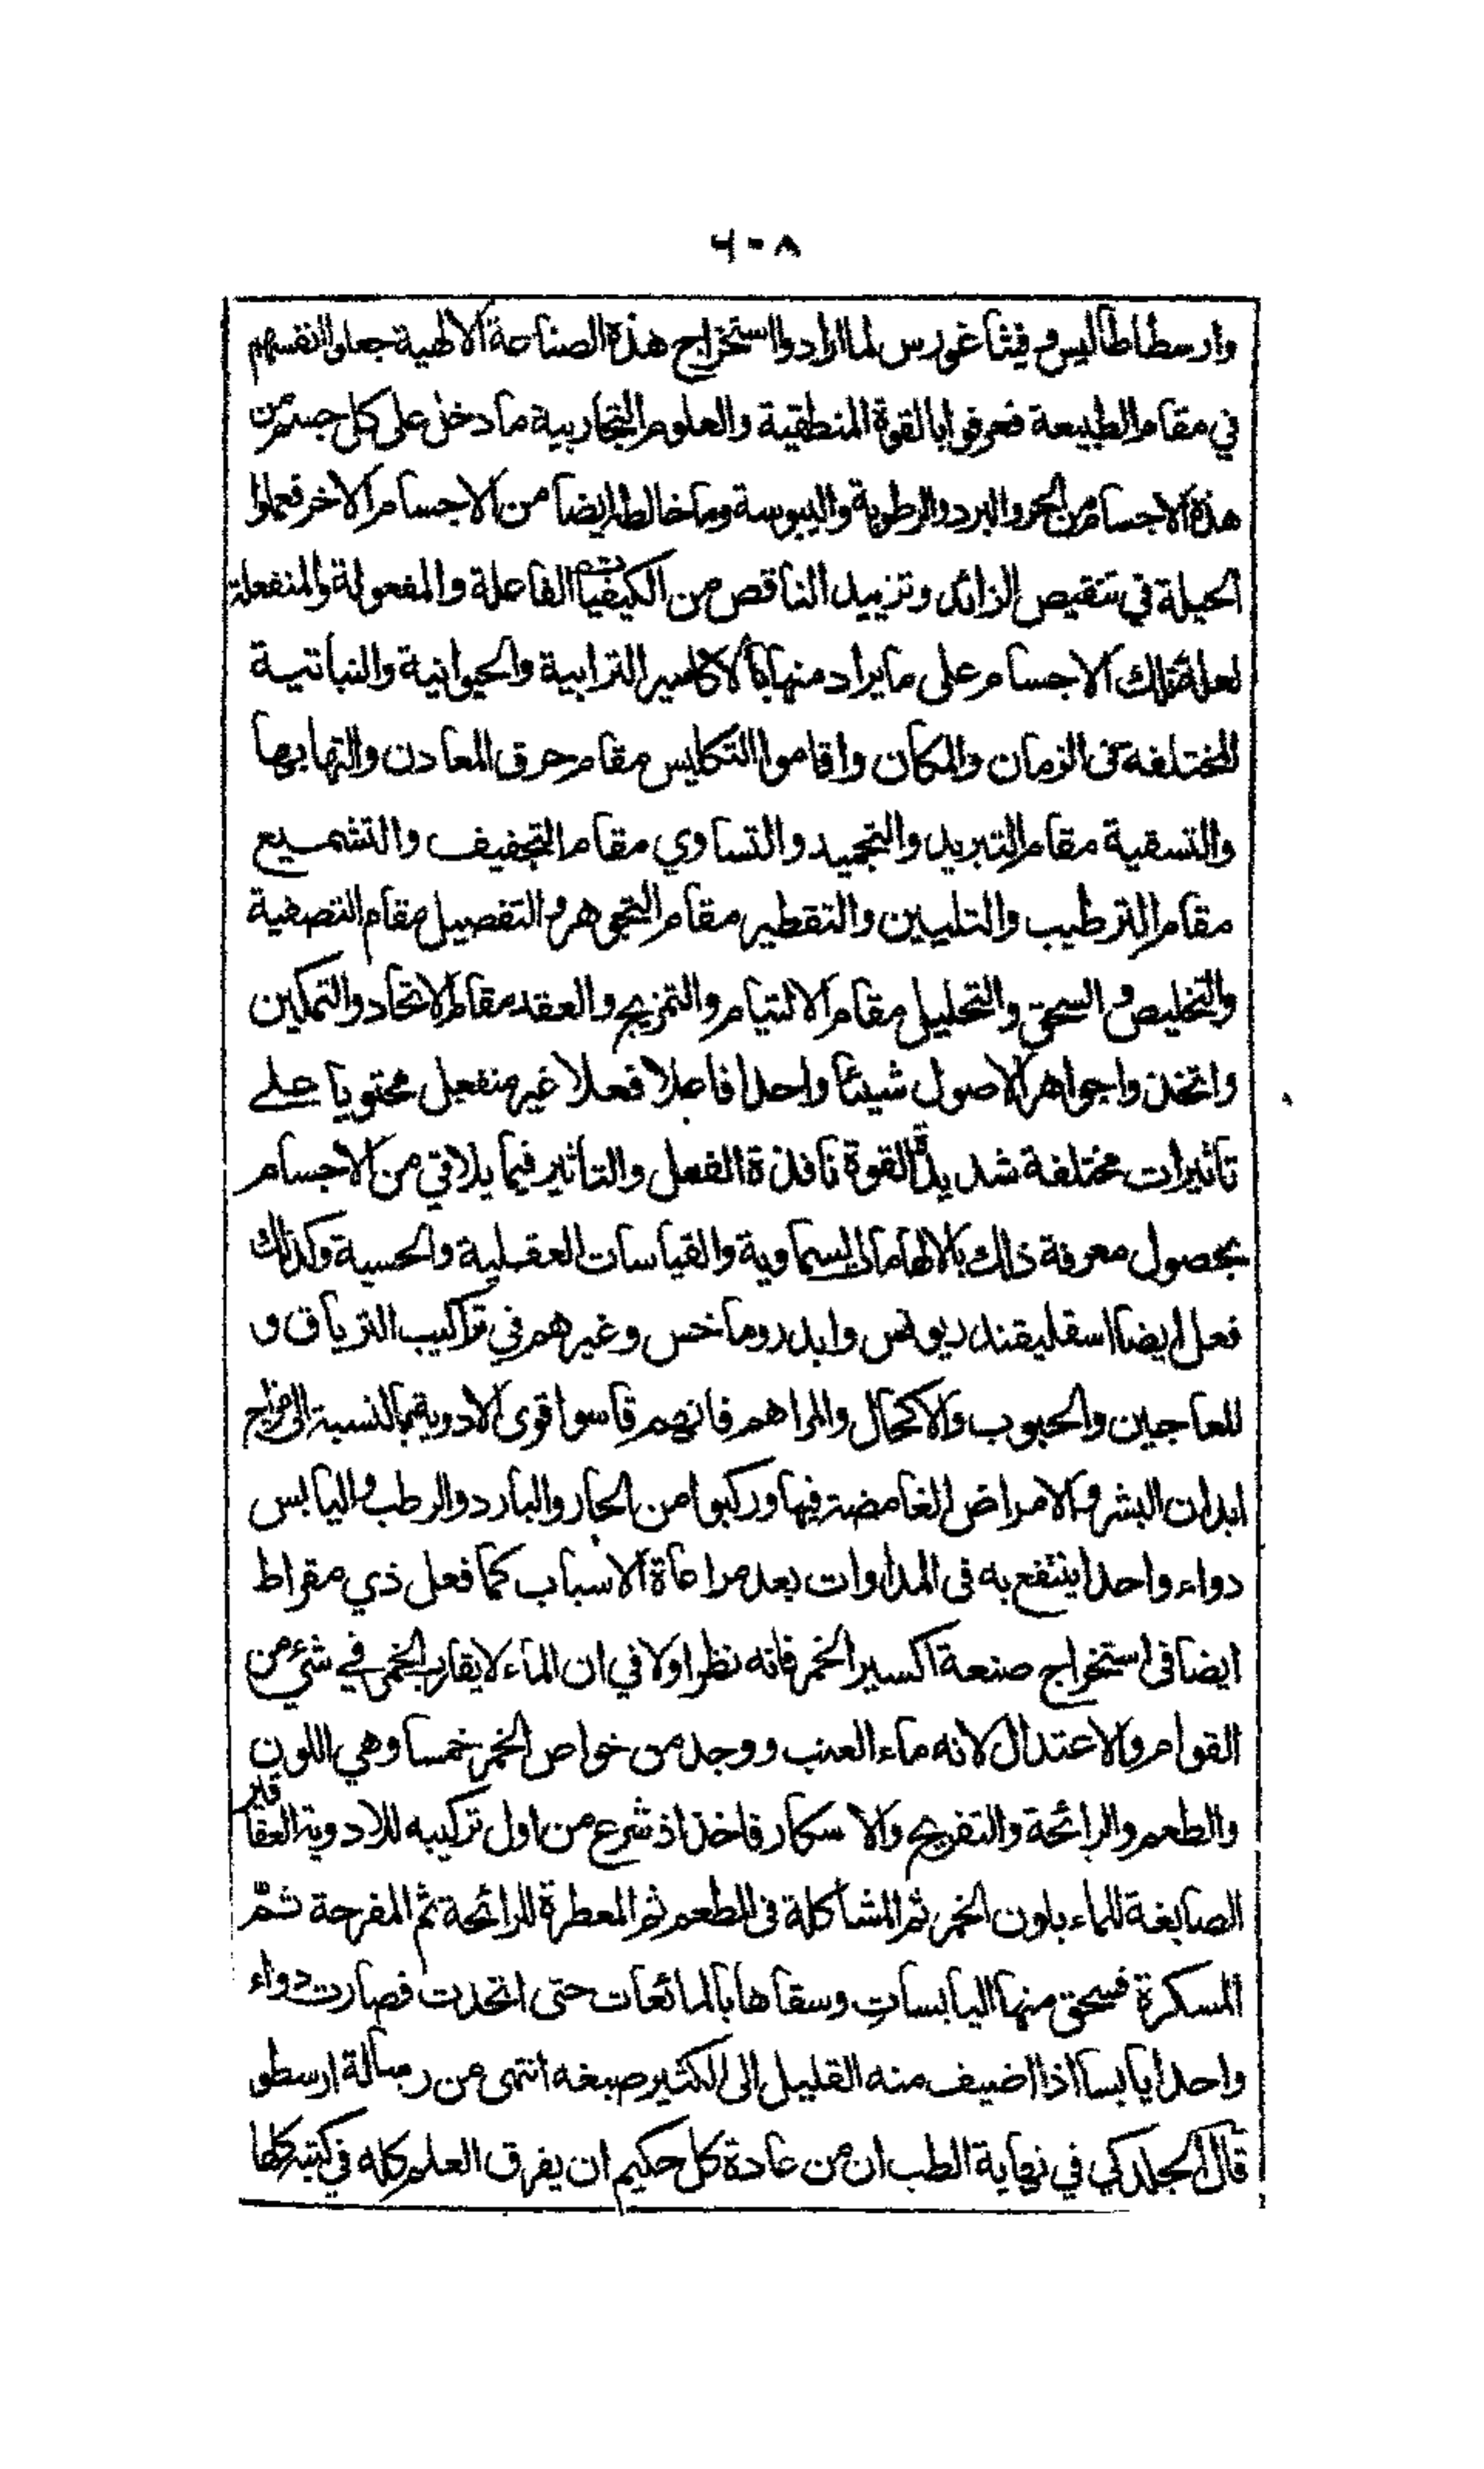 ٦٠٨
وارسطاطاليس و فيثاغورس لما ارادوا استخراج هذة الصناعة الالهية جعلوا انفسهم
في مقام الطبيعة فعرفوا بالقوة المنطقية والعلوم التجاربية ما دخل على كل جسم من
هذة الاجسام من الحر والبرد والرطوبة واليبوسة وما خالطه ايضا من الاجسام الاخر فعملوا
الحيلة في تنقيص الزائد وتزييد الناقص من الكيفيات الفاعلة والمفعولة والمنفعلة
لعلة تلك الاجسام على ما يراد منها بالاكاسير الترابية والحيوانية والنباتية
المختلفة في الزمان والمكان واقاموا التكليس مقام حرق المعادن والتهابها
والتسقية مقام التبريد والتجميد والتساوي مقام التجفيف والتشميع
مقام الترطيب والتليين والتقطير مقام التجوهر والتفصيل مقام التصفية
والتخليص والسحق والتحليل مقام الالتيام والتمزيج والعقد مقام الاتحاد والتمكين
واتخذوا جواهر الاصول شيئا واحدا فاعلا فعلا غير منفعل محتويا على
تاثيرات مختلفة شديدة القوة نافذة الفعل والتاثير فيما يلاقي من الاجسام
بحصول معرفة ذلك بالالهامات السماوية والقياسات العقلية والحسية وكذلك
فعل ايضا اسقليقنديولس وابدروماخس وغيرهم في تراكيب الترياق و
المعاجين والحبوب والاكحال والمراهم فانهم قاسوا قوى الادوية بالنسبة الى مزاج
ابدان البشر والامراض الغامضة فيها وركبوا من الحار والبارد والرطب واليابس
دواء واحدا ينتفع به في المداوات بعد مراعاة الاسباب كما فعل ذي مقراط
ايضا في استخراج صنعة اكسير الخمر فانه نظر اولا في ان الماء لا يقارب الخمر في شئ من
القوام والاعتدال لانه ماء العنب ووجد من خواص الخمر خمسا وهي اللون
والطعم والرائحة والتفريح والاسكار فاخذ اذ شرع من اول تركيبه للادوية العقاقير
الصابغة للماء بلون الخمر ثم المشاكلة في الطعم ثم المعطرة للرائحة ثم المفرحة ثمّ
المسكرة فسحق منها اليابسات وسقاها بالمائعات حتى اتحدت فصارت دواء
واحدا يابسا اذا اضيف منه القليل الى الكثير صبغه انتهى من رسالة ارسطو
قال الجلدكي في نهاية الطلب ان من عادة كل حكيم ان يفرق العلم كله في كتبه كلها